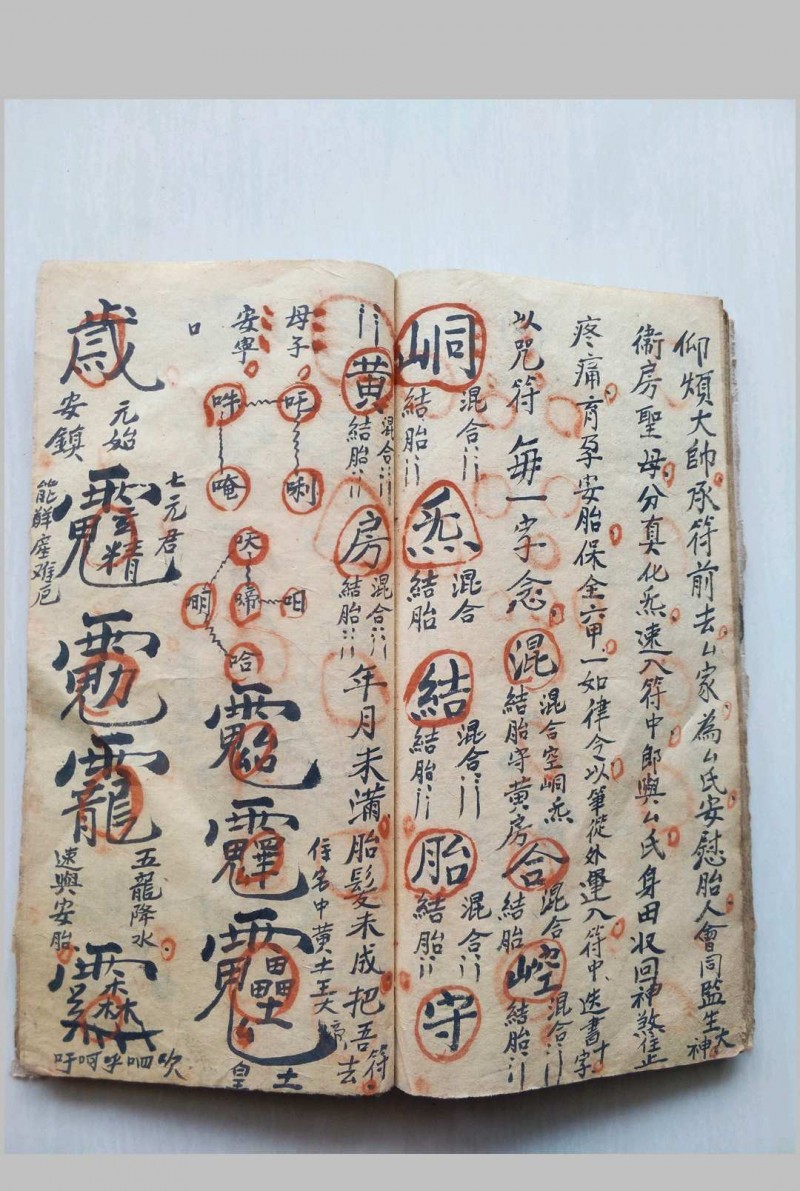 仰煩大帥承符前去厶家為厶氏安慰胎人會同監生大神
衛房聖母分真化炁速入符中即與厶氏身田收回神煞住止
疼痛育孕安胎保全六甲一如律令以筆從外運入符中迭書十字
以咒符 每一字念
混 混合空峒炁 結胎守黄房
合 混合 結胎
崆 混合〻〻 結胎〻〻
峒 混合〻〻 結胎〻〻
炁 混合 結胎
結 混合〻〻 結胎〻〻
胎 混合 結胎〻〻
守
〻〻
黄 混合〻〻 結胎〻〻
房 混合〻〻 結胎〻〻
年月未滿胎髮未成把吾符去
母子
安寧
吽
唵
唎
啼
呾
哈
中黄土王大帝
土皇
口
元始
安鎮
七元君
能解産难厄
五龍降水
速興安胎
吹呬呼呵吁